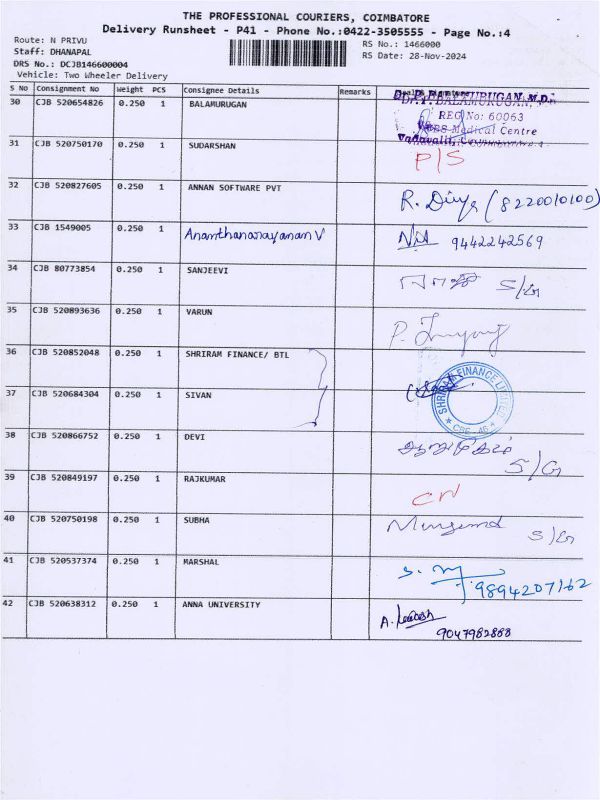 THE PROFESSIONAL COURIERS, COIMBATORE
Delivery Runsheet - P41 - Phone No.:0422-3505555 - Page No.:4
Route: N PRIVU RS No.: 1466000
Staff: DHANAPAL RS Date: 28-Nov-2024
DRS No.: DCJB146600004
Vehicle: Two Wheeler Delivery
S No Consignment No Weight PCS Consignee Details Remarks
30 CJB 520654826 0.250 1 BALAMURUGAN Dr.P.BALAMURUGAN, M.D.,
REG No: 60063
Medical Centre
31 CJB 520750170 0.250 1 SUDARSHAN P/S
32 CJB 520827605 0.250 1 ANNAN SOFTWARE PVT R. Divya (8220010100)
33 CJB 1549005 0.250 1 Ananthanarayanan V 9442242569
34 CJB 80773854 0.250 1 SANJEEVI S/G
35 CJB 520893636 0.250 1 VARUN P.
36 CJB 520852048 0.250 1 SHRIRAM FINANCE/ BTL
SHRIRAM FINANCE LIMITED
★ CBE - 46 ★
37 CJB 520684304 0.250 1 SIVAN
38 CJB 520866752 0.250 1 DEVI ஆறுமுகம்
S/G
39 CJB 520849197 0.250 1 RAJKUMAR CN
40 CJB 520750198 0.250 1 SUBHA S/G
41 CJB 520537374 0.250 1 MARSHAL 9894207162
42 CJB 520638312 0.250 1 ANNA UNIVERSITY A.
9047982888